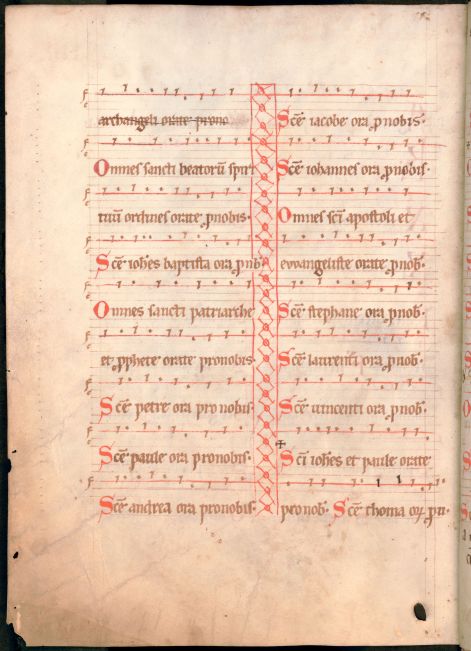 archangeli orate prono
Omnes sancti beatorū spiri
tuū ordines orate ꝓnobis·
Sc̄e ioh̄es baptista ora ꝓnob̄
Omnes sancti patriarche
et ꝓphete orate pronobis
Sc̄e petre ora pro nobis·
Sc̄e paule ora pronobis·
Sc̄e andrea ora pronobis·
Sc̄e iacobe ora ꝓnobis·
Sc̄e iohannes ora ꝓnobis·
Omnes sc̄i apostoli et
ewangeliste orate ꝓnob̄·
Sc̄e stephane ora ꝓnob̄·
Sc̄e laurenti ora ꝓnob̄·
Sc̄e uincenti ora ꝓnob̄·
Sc̄i ioh̄es et paule orate
pronob̄· Sc̄e thoma